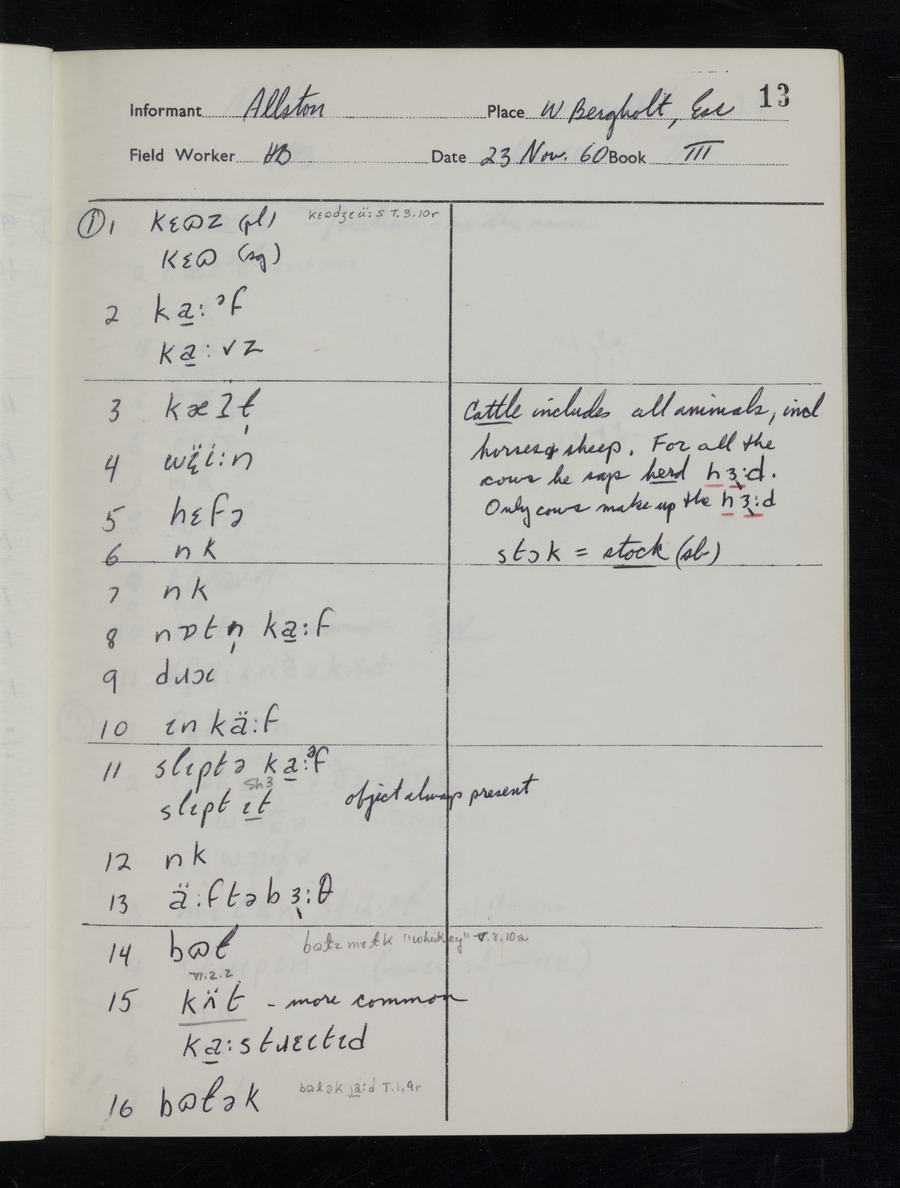 13
Informant Allston Place W Bergholt, Ess
Field Worker HB Date 23 Nov. 60 Book III
① 1 kɛɷz (pl)
kɛɷ (sg)
2 ka̱:ᵊf
ka̱:vz
3 kæʔt̩
Cattle includes all animals, incl
horses & sheep. For all the
cows he says herd hɜ:d.
Only cows make up the hɜ:d
stɔk = stock (sb)
4 wɛ̈ɩ:n
5 hɛfə
6 nk
7 nk
8 nɒtn̩ ka̱:f
9 dɹaɪ
10 ɩn kä:f
11 slɩptə ka̱:ᵊf
slɩpt ɩt object always present
12 nk
13 ä:ftəbɜ:θ
14 bɷɫ bɷɫz mɩɫk "whiskey" V.8.10a
VI.2.2
15 kʌ̈t - more common
ka̱:stɹɛɩtɩd
16 bɷɫək bɷlək ja̱:d I.1.9r